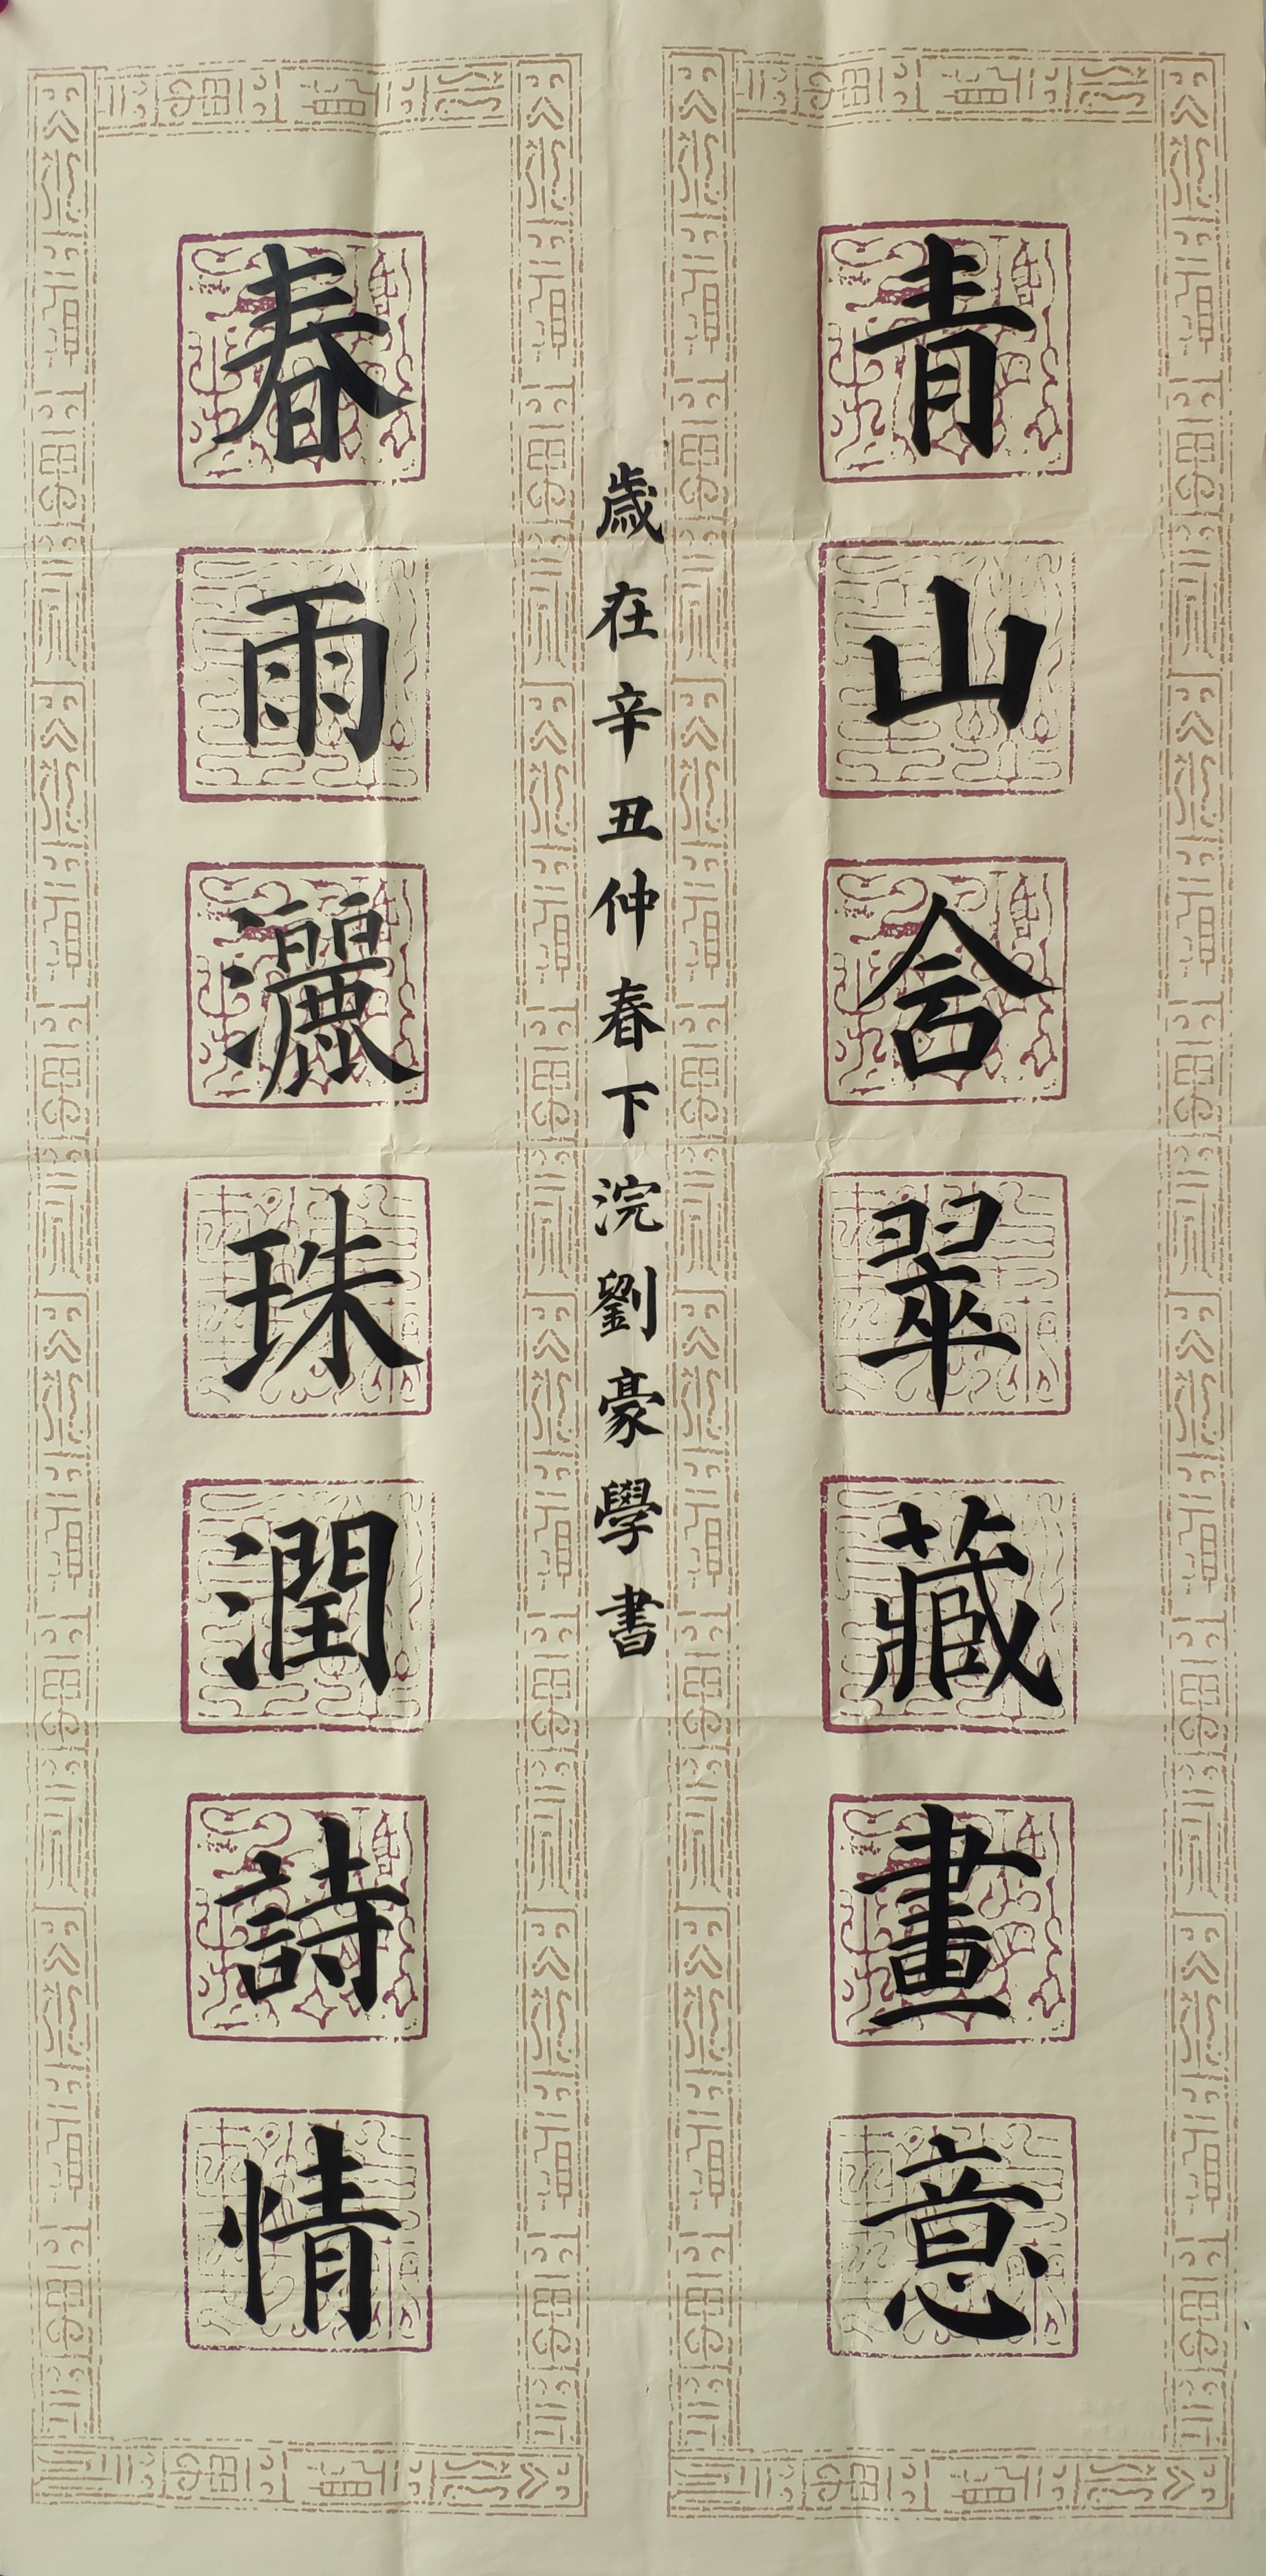 青山含翠藏畫意
歲在辛丑仲春下浣劉豪學書
春雨灑珠潤詩情